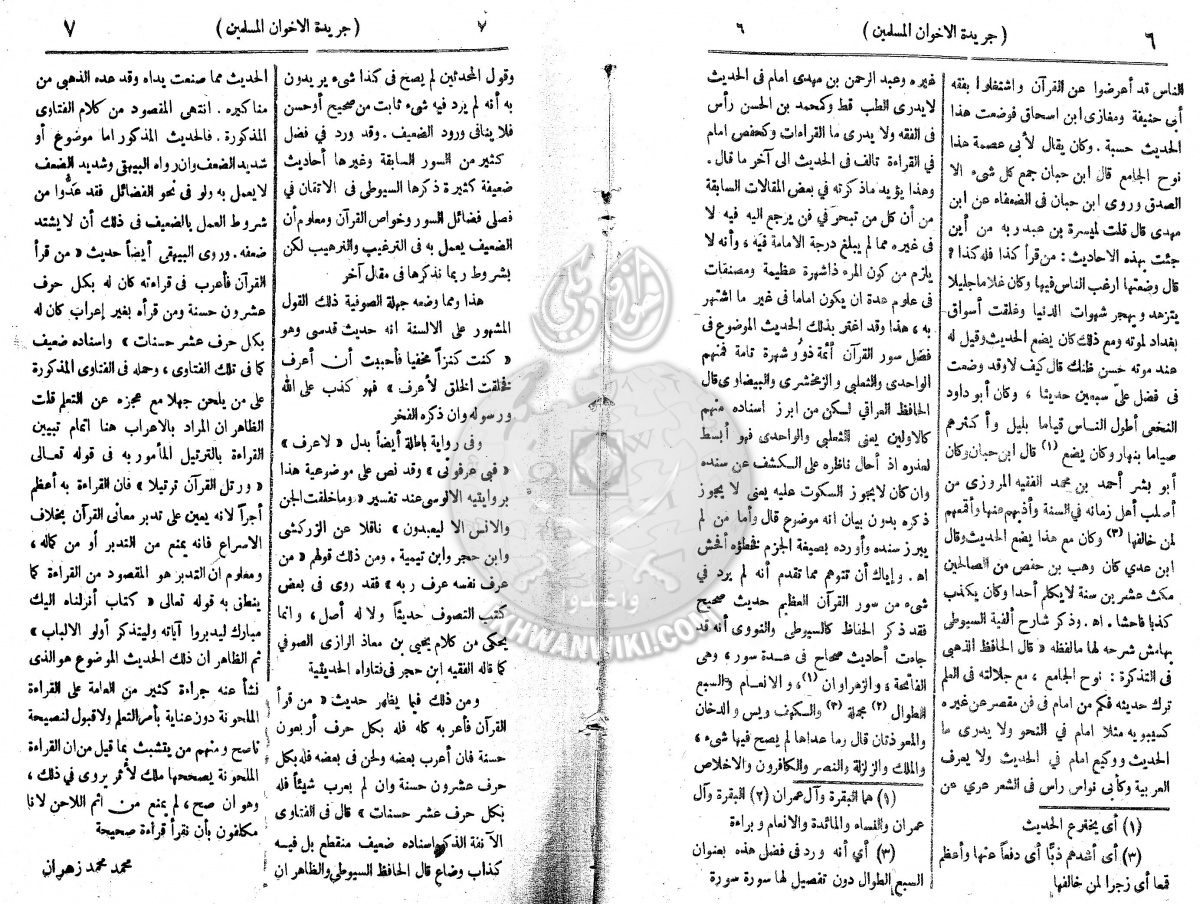 ٦
( جريدة الاخوان المسلمين )
٦
الناس قد أعرضوا عن القرآن واشتغلوا بفقه
أبى حنيفة ومغازى ابن اسحاق فوضعت هذا
الحديث حسبة . وكان يقال لأبى عصمة هذا
نوح الجامع قال ابن حبان جمع كل شىء الا
الصدق وروى ابن حبان فى الضعفاء عن ابن
مهدى قال قلت لميسرة بن عبد ربه من أين
جئت بهذه الاحاديث : من قرأ كذا فله كذا ؟
قال وضعتها ارغب الناس فيها وكان غلاما جليلا
يتزهد ويهجر شهوات الدنيا وغلقت أسواق
بغداد لموته ومع ذلك كان يضع الحديث وقيل له
عند موته حسن ظنك قال كيف لا وقد وضعت
فى فضل علىّ سبعين حديثا ، وكان أبو داود
النخعى أطول الناس قياما بليل وأكثرهم
صياما بنهار وكان يضع (١) قال ابن حبان وكان
أبو بشر أحمد بن محمد الفقيه المروزى من
أصلب أهل زمانه فى السنة وأذبهم عنها وأقمعهم
لمن خالفها (٣) وكان مع هذا يضع الحديث وقال
ابن عدي كان وهب بن حفص من الصالحين
مكث عشرين سنة لا يكلم أحدا وكان يكذب
كذبا فاحشا . اه . وذكر شارح ألفية السيوطى
بهامش شرحه لها مالفظه « قال الحافظ الذهبى
فى التذكرة : نوح الجامع ، مع جلالته فى العلم
ترك حديثه فكم من امام فى فن مقصر عن غيره
كسيبويه مثلا امام فى النحو ولا يدرى ما
الحديث ووكيع امام فى الحديث ولا يعرف
العربية وكأبى نواس راس فى الشعر عري عن
(١) أى يخترع الحديث
(٣) أى أشدهم ذبّا أى دفعاً عنها وأعظم
قمعا أى زجرا لمن خالفها
غيره وعبد الرحمن بن مهدى امام فى الحديث
لايدرى الطب قط وكمحمد بن الحسن رأس
فى الفقه ولا يدرى ما القراءات وكحفص امام
فى القراءة تالف فى الحديث الى آخر ما قال .
وهذا يؤيد ماذكرته فى بعض المقالات السابقة
من أن كل من تبحر فى فن يرجع اليه فيه لا
فى غيره مما لم يبلغ درجة الامامة فيه ، وأنه لا
يلزم من كون المرء ذا شهرة عظيمة ومصنفات
فى علوم عدة ان يكون اماما فى غير ما اشتهر
به ، هذا وقد اغتر بذلك الحديث الموضوع فى
فضل سور القرآن أئمة ذوُو شهرة تامة فمنهم
الواحدى والثعلبي والزمخشرى والبيضاوى قال
الحافظ العراقي لكن من ابرز اسناده منهم
كالاولين يعنى الثعلبي والواحدى فهو أبسط
لعذره اذ أحال ناظره على الكشف عن سنده
وان كان لايجوز السكوت عليه يعنى لا يجوز
ذكره بدون بيان انه موضوع قال وأما من لم
يبرز سنده وأورده بصيغة الجزم فخطؤه أفحش
اه . وإياك أن تتوهم مما تقدم أنه لم يرد في
شىء من سور القرآن العظيم حديث صحيح
فقد ذكر الحفاظ كالسيوطى والنووى أنه قد
جاءت أحاديث صحاح فى عدة سور ، وهى
الفاتحة ، والزهراوان (١) ، والانعام والسبع
الطوال (٢) مجملة (٣) والكهف ويس والدخان
والملك والزلزلة والنصر والكافرون والاخلاص
والمعوذتان قال وما عداها لم يصح فيها شىء ،
(١) هما البقرة وآل عمران (٢) البقرة وآل
عمران والنساء والمائدة والانعام وبراءة
(٣) أي أنه ورد فى فضل هذه بعنوان
السبع الطوال دون تفصيل لها سورة سورة
٧
( جريدة الاخوان المسلمين )
٧
وقول المحدثين لم يصح فى كذا شىء يريدون
به أنه لم يرد فيه شىء ثابت من صحيح أو حسن
فلا ينافى ورود الضعيف . وقد ورد في فضل
كثير من السور السابقة وغيرها أحاديث
ضعيفة كثيرة ذكرها السيوطى فى الاتقان في
فصلى فضائل السور وخواص القرآن ومعلوم أن
الضعيف يعمل به فى الترغيب والترهيب لكن
بشروط ربما نذكرها فى مقال آخر
هذا ومما وضعه جهلة الصوفية ذلك القول
المشهور على الالسنة انه حديث قدسى وهو
« كنت كنزاً مخفيا فأحببت أن أعرف
فخلقت الخلق لأعرف » فهو كذب على الله
ورسوله وان ذكره الفخر
وفى رواية باطلة أيضاً بدل « لاعرف »
« فبى عرفونى » وقد نص على موضوعية هذا
بروايتيه الالوسى عند تفسير « وما خلقت الجن
والانس الا ليعبدون » ناقلا عن الزركشى
وابن حجر وابن تيمية . ومن ذلك قولهم « من
عرف نفسه عرف ربه » فقد روى فى بعض
كتب التصوف حديثاً ولا له أصل ، وانما
يحكى من كلام يحيى بن معاذ الرازى الصوفي
كما قاله الفقيه ابن حجر فى فتاواه الحديثية
ومن ذلك فيما يظهر حديث « من قرأ
القرآن فأعربه كله فله بكل حرف أربعون
حسنة فان أعرب بعضه ولحن فى بعضه فله بكل
حرف عشرون حسنة وان لم يعرب شيئاً فله
بكل حرف عشر حسنات » قال فى الفتاوى
الآنفة الذكر اسناده ضعيف منقطع بل فيه
كذاب وضاع قال الحافظ السيوطى والظاهر ان
الحديث مما صنعت يداه وقد عده الذهبى من
مناكيره . انتهى المقصود من كلام الفتاوى
المذكورة . فالحديث المذكور اما موضوع أو
شديد الضعف وان رواه البيهقى وشديد الضعف
لا يعمل به ولو فى نحو الفضائل فقد عدُّوا من
شروط العمل بالضعيف فى ذلك أن لا يشتد
ضعفه . وروى البيهقى أيضاً حديث « من قرأ
القرآن فأعرب فى قراءته كان له بكل حرف
عشرون حسنة ومن قرأه بغير إعراب كان له
بكل حرف عشر حسنات » واسناده ضعيف
كما فى تلك الفتاوى ، وحمله فى الفتاوى المذكورة
على من يلحن جهلا مع عجزه عن التعلم قلت
الظاهر ان المراد بالاعراب هنا اتمام تبيين
القراءة بالترتيل المأمور به فى قوله تعالى
« ورتل القرآن ترتيلا » فان القراءة به أعظم
أجراً لانه يعين على تدبر معانى القرآن بخلاف
الاسراع فانه يمنع من التدبر أو من كماله ،
ومعلوم ان التدبر هو المقصود من القراءة كما
ينطق به قوله تعالى « كتاب أنزلناه اليك
مبارك ليدبروا آياته وليتذكر أولو الالباب »
ثم الظاهر ان ذلك الحديث الموضوع هو الذى
نشأ عنه جراءة كثير من العامة على القراءة
الملحونة دون عناية بأمر التعلم ولا قبول لنصيحة
ناصح ومنهم من يتشبث بما قيل من ان القراءة
الملحونة يصححها ملك لأثر يروى في ذلك ،
وهو ان صح ، لم يمنع من اثم اللاحن لانا
مكلفون بأن نقرأ قراءة صحيحة
محمد محمد زهران
وأعدوا
IKHWANWIKI.COM